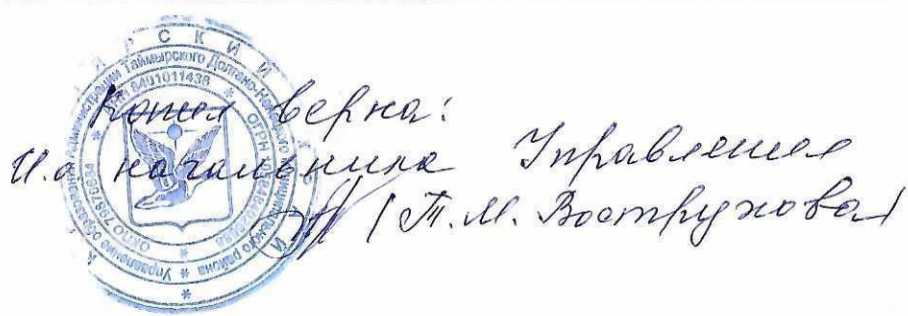 Копия верна:
И.о начальника Управления
(Т.М. Вострухова)
ЯРСКИЙ
Управление образования Администрации Таймырского Долгано-Ненецкого муниципального района
ИНН 8401011438 * ОГРН
ОКПО